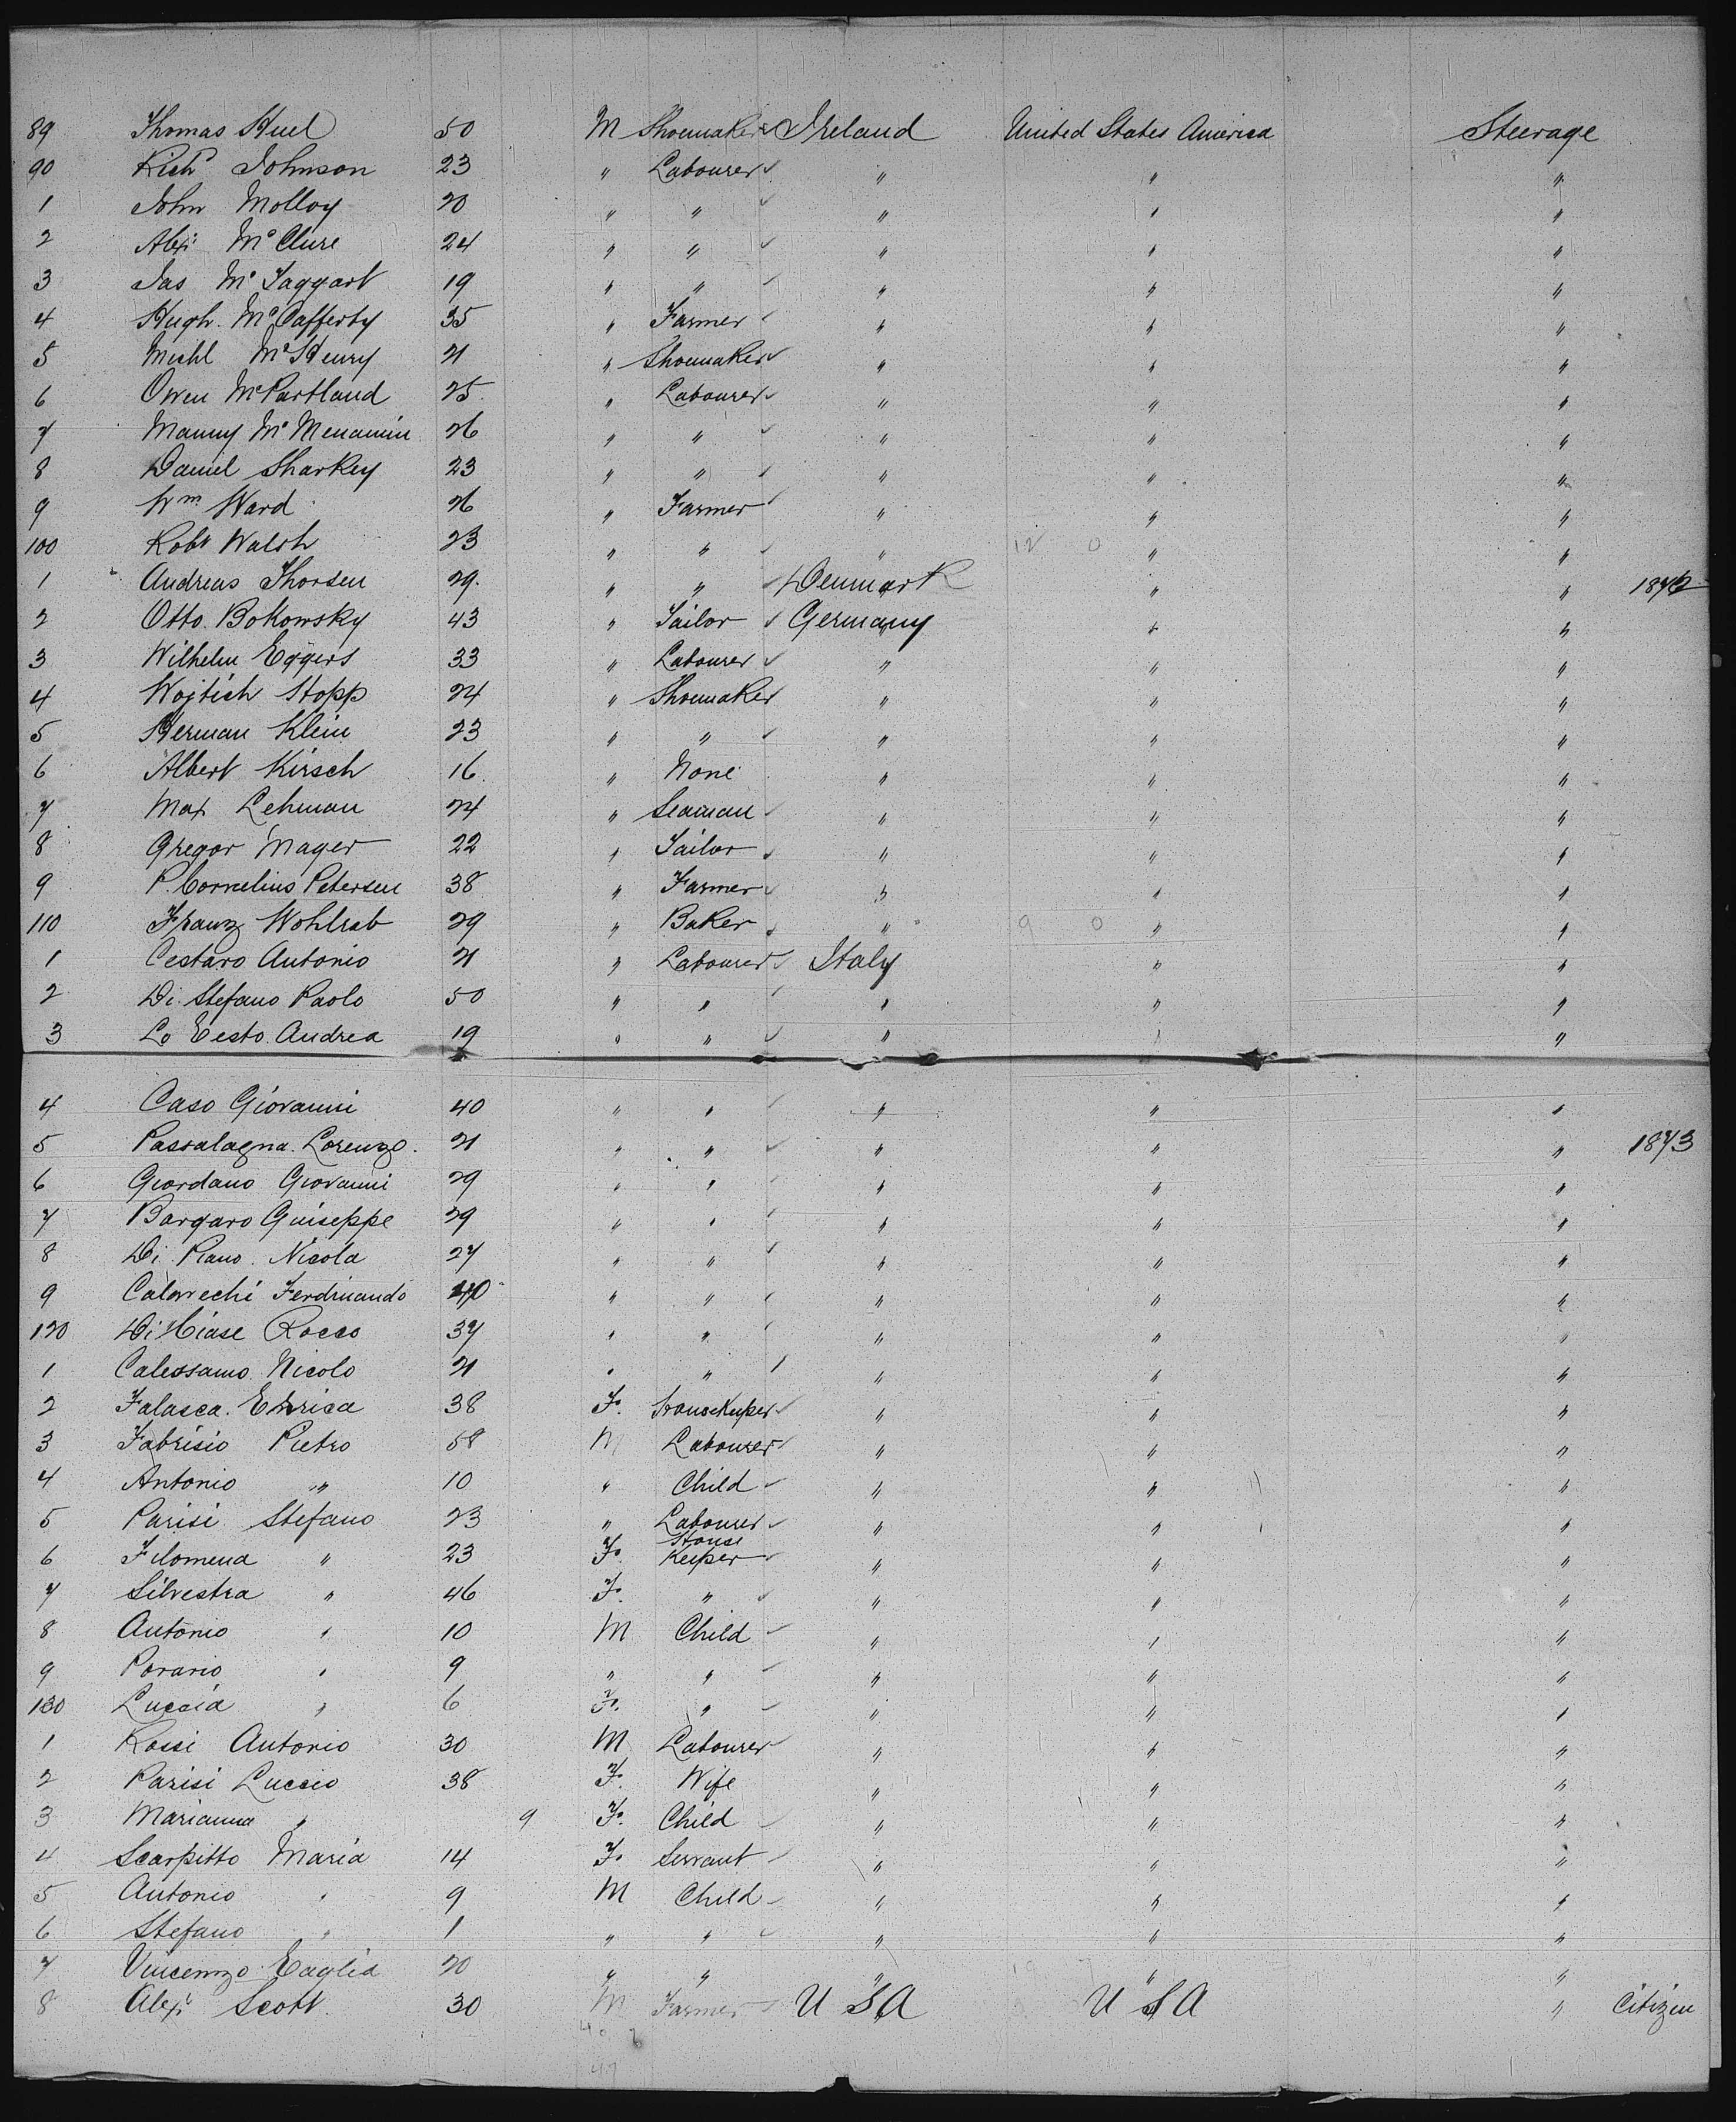 89 Thomas Huel 50 M Shoemaker Ireland United States America Steerage
90 Richd Johnson 23 " Labourer " " "
1 John Molloy 20 " " " " "
2 Alexr McClure 24 " " " " "
3 Jas McTaggart 19 " " " " "
4 Hugh McCafferty 35 " Farmer " " "
5 Michl McHenry 21 " Shoemaker " " "
6 Owen McPartland 25 " Labourer " " "
7 Manny McMenamin 26 " " " " "
8 Daniel Sharkey 23 " " " " "
9 Wm Ward 26 " Farmer " " "
100 Robt Walsh 23 " " " 12 0 " "
1 Andreas Thorsen 29. " " Denmark " " 1872
2 Otto Bokowsky 43 " Tailor Germany " "
3 Wilhelm Eggers 33 " Labourer " " "
4 Wojtich Stopp 24 " Shoemaker " " "
5 Herman Klein 23 " " " " "
6 Albert Kirsch 16 " None " " "
7 Max Lehman 24 " Seaman " " "
8 Gregor Mager 22 " Tailor " " "
9 P. Cornelius Petersen 38 " Farmer " " "
110 Franz Wohlrab 29 " Baker " 9 0 " "
1 Cestaro Antonio 21 " Labourer Italy " "
2 Di Stefano Paolo 50 " " " " "
3 Lo Eesto Andrea 19 " " " " "
4 Caso Giovanni 40 " " " " "
5 Passalagna Lorenzo 21 " " " " " 1873
6 Giordano Giovanni 29 " " " " "
7 Bargaro Guiseppe 29 " " " " "
8 Di Piano Nicola 27 " " " " "
9 Ferdinando 40 " " " " "
120 Rocco 37 " " " " "
1 Calessamo Nicolo 21 " " " " "
2 Falasca Enrica 38 F. Housekeeper " " "
3 Fabrisio Pietro 58 M Labourer " " "
4 Antonio " 10 " Child " " "
5 Parisi Stefano 23 " Labourer " " "
6 Filomena " 23 F. House Keeper " " "
7 Silvestra " 46 F. " " " "
8 Antonio " 10 M Child " " "
9 " 9 " " " " "
130 Luccia " 6 F. " " " "
1 Rossi Antonio 30 M Labourer " " "
2 Parisi Luccio 38 F. Wife " " "
3 Marianna " 9 F. Child " " "
4 Scarpitto Maria 14 F. Servant " " "
5 Antonio " 9 M Child " " "
6 Stefano " 1 " " " " "
7 Vincenzo Eaglia 20 " " " " "
8 Alexr Scott 30 M Farmer U S A U S A " Citizen